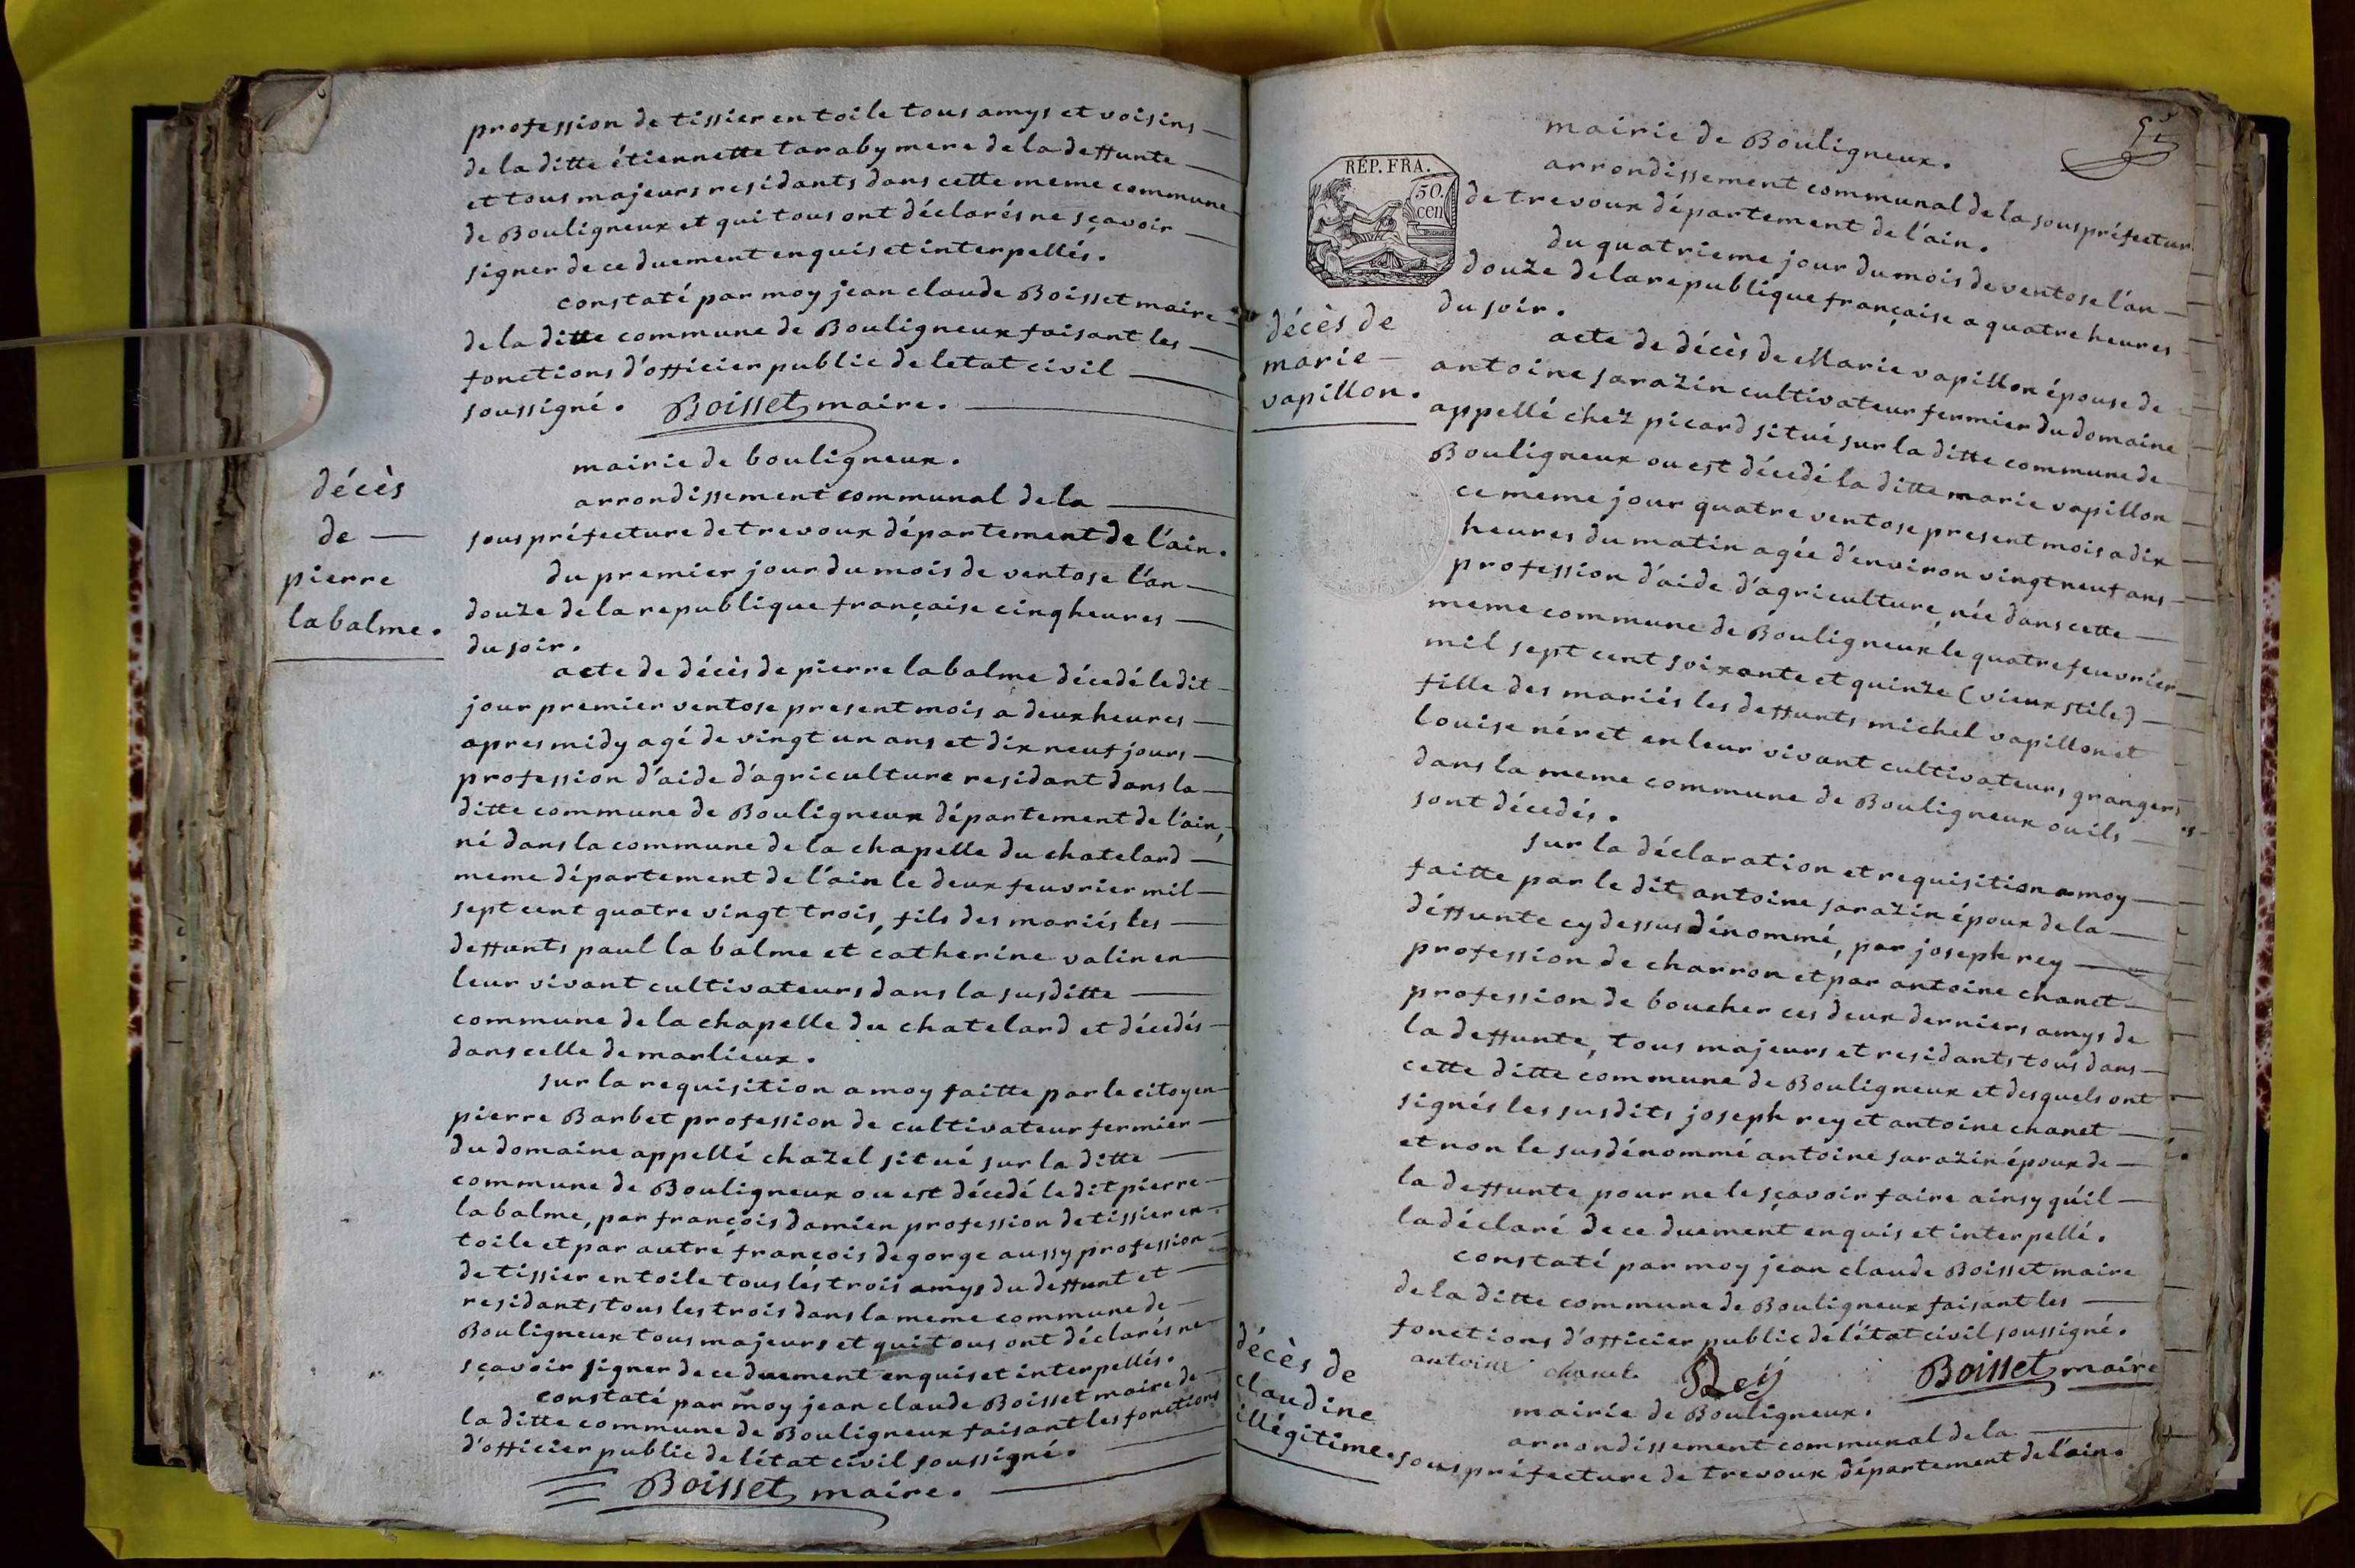 profession de tissier en toile tous amys et voisins
de la ditte étiennette taraby mere de la deffunte
et tous majeurs residants dans cette meme commune
de Bouligneux et qui tous ont déclarés ne sçavoir
signer de ce duement enquis et interpellés.
constaté par moy jean claude Boisset maire
de la ditte commune de Bouligneux faisant les
fonctions d'officier public de letat civil
soussigné. Boisset maire.
décès
de
pierre
labalme.
mairie de bouligneux.
arrondissement communal de la
sous préfecture de trevoux département de l'ain.
du premier jour du mois de ventose l'an
douze de la republique française cinq heures
du soir.
acte de décès de pierre labalme décedé le dit
jour premier ventose present mois a deux heures
apres midy agé de vingt un ans et dix neuf jours
profession d'aide d'agriculture residant dans la
ditte commune de Bouligneux département de l'ain,
né dans la commune de la chapelle du chatelard
meme département de l'ain le deux feuvrier mil
sept cent quatre vingt trois, fils des mariés les
deffunts paul la balme et catherine valin en
leur vivant cultivateurs dans la susditte
commune de la chapelle du chatelard et décedés
dans celle de marlieux.
sur la requisition a moy faitte par le citoyen
pierre Barbet profession de cultivateur fermier
du domaine appellé chazel situé sur la ditte
commune de Bouligneux ou est décedé le dit pierre
labalme, par françois damien profession de tissier en
toile et par autre françois degorge aussy profession
de tissier en toile tous les trois amys du deffunt et
residants tous les trois dans la meme commune de
Bouligneux tous majeurs et qui tous ont déclarés ne
sçavoir signer de ce duement enquis et interpellés.
constaté par moy jean claude Boisset maire de
la ditte commune de Bouligneux faisant les fonctions
d'officier public de l'état civil soussigné.
Boisset maire.
RÉP. FRA.
50.
cen
décès de
marie
vapillon.
mairie de Bouligneux.
arrondissement communal de la sous préfectur
de trevoux département de l'ain.
du quatrieme jour du mois de ventose l'an
douze de la republique française a quatre heures
du soir.
acte de décès de Marie vapillon épouse de
antoine sarazin cultivateur fermier du domaine
appellé chez picard situé sur la ditte commune de
Bouligneux ou est décedé la ditte marie vapillon
ce meme jour quatre ventose present mois a dix
heures du matin agée d'environ vingt neuf ans
profession d'aide d'agriculture, née dans cette
meme commune de Bouligneux le quatre feuvrier
mil sept cent soixante et quinze (vieux stile)
fille des mariés les deffunts michel vapillon et
louise néret en leur vivant cultivateurs grangers
dans la meme commune de Bouligneux ou ils
sont décedés.
sur la déclaration et requisition a moy
faitte par le dit antoine sarazin époux de la
déffunte cy dessus dénommé, par joseph rey
profession de charron et par antoine chanet
profession de boucher ces deux derniers amys de
la deffunte, tous majeurs et residants tous dans
cette ditte commune de Bouligneux et desquels ont
signés les susdits joseph rey et antoine chanet
et non le susdénommé antoine sarazin époux de
la deffunte pour ne le sçavoir faire ainsy qu'il
la déclaré de ce duement enquis et interpellé.
constaté par moy jean claude Boisset maire
de la ditte commune de Bouligneux faisant les
fonctions d'officier public de l'état civil soussigné.
antoine chanet Rey Boisset maire
décès de
claudine
illégitime.
mairie de Bouligneux.
arrondissement communal de la
sous préfecture de trevoux département de l'ain.